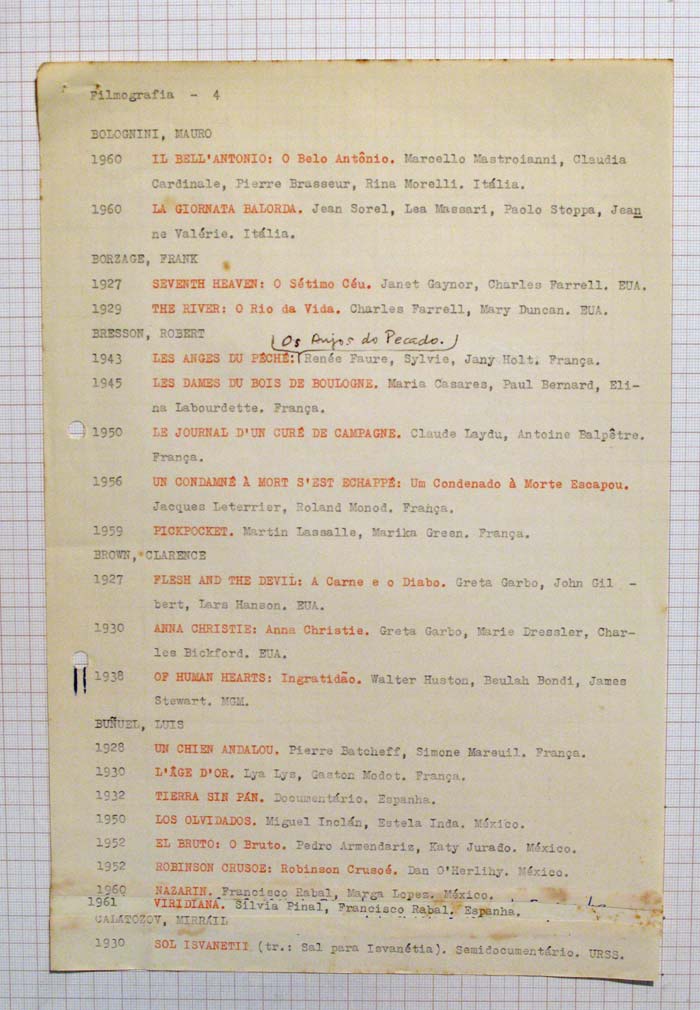 Filmografia - 4
BOLOGNINI, MAURO
1960 IL BELL'ANTONIO: O Belo Antônio. Marcello Mastroianni, Claudia
Cardinale, Pierre Brasseur, Rina Morelli. Itália.
1960 LA GIORNATA BALORDA. Jean Sorel, Lea Massari, Paolo Stoppa, Jean
ne Valérie. Itália.
BORZAGE, FRANK
1927 SEVENTH HEAVEN: O Sétimo Céu. Janet Gaynor, Charles Farrell. EUA.
1929 THE RIVER: O Rio da Vida. Charles Farrell, Mary Duncan. EUA.
BRESSON, ROBERT
(Os Anjos do Pecado.)
1943 LES ANGES DU PÉCHÉ: Renée Faure, Sylvie, Jany Holt. França.
1945 LES DAMES DU BOIS DE BOULOGNE. Maria Casares, Paul Bernard, Eli-
na Labourdette. França.
1950 LE JOURNAL D'UN CURÉ DE CAMPAGNE. Claude Laydu, Antoine Balpêtre.
França.
1956 UN CONDAMNÉ À MORT S'EST ECHAPPÉ: Um Condenado à Morte Escapou.
Jacques Leterrier, Roland Monod. França.
1959 PICKPOCKET. Martin Lassalle, Marika Green. França.
BROWN, CLARENCE
1927 FLESH AND THE DEVIL: A Carne e o Diabo. Greta Garbo, John Gil -
bert, Lars Hanson. EUA.
1930 ANNA CHRISTIE: Anna Christie. Greta Garbo, Marie Dressler, Char-
les Bickford. EUA.
1938 OF HUMAN HEARTS: Ingratidão. Walter Huston, Beulah Bondi, James
Stewart. MGM.
BUÑUEL, LUIS
1928 UN CHIEN ANDALOU. Pierre Batcheff, Simone Mareuil. França.
1930 L'ÂGE D'OR. Lya Lys, Gaston Modot. França.
1932 TIERRA SIN PÁN. Documentário. Espanha.
1950 LOS OLVIDADOS. Miguel Inclán, Estela Inda. México.
1952 EL BRUTO: O Bruto. Pedro Armendariz, Katy Jurado. México.
1952 ROBINSON CRUSOE: Robinson Crusoé. Dan O'Herlihy. México.
1960 NAZARIN. Francisco Rabal, Marga Lopez. México.
1961 VIRIDIANA. Silvia Pinal, Francisco Rabal. Espanha.
CALATOZOV, MIRRAIL
1930 SOL ISVANETII (tr.: Sal para Isvanétia). Semidocumentário. URSS.